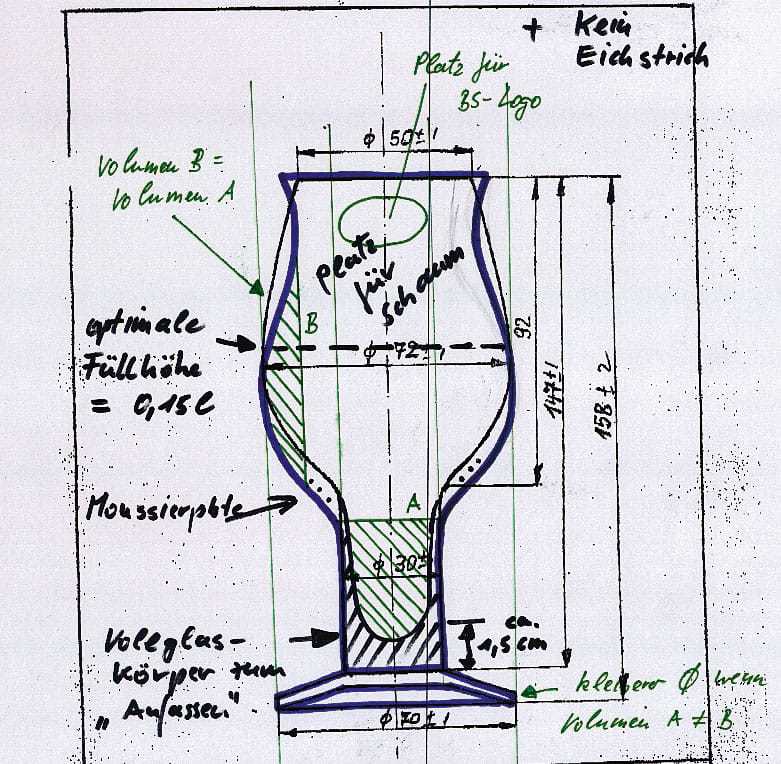 + Kein
Eichstrich
Platz für
BS-Logo
ϕ 50±1
Volumen B =
Volumen A
Platz
für
Schaum
B
optimale
Füllhöhe
= 0,15l
ϕ 72±1
92
147±1
158±2
Moussierpkte
A
ϕ 30±
ca.
1,5cm
Vollglas-
körper zum
"Anfassen".
kleinerer ϕ wenn
Volumen A ≠ B
ϕ 70±1